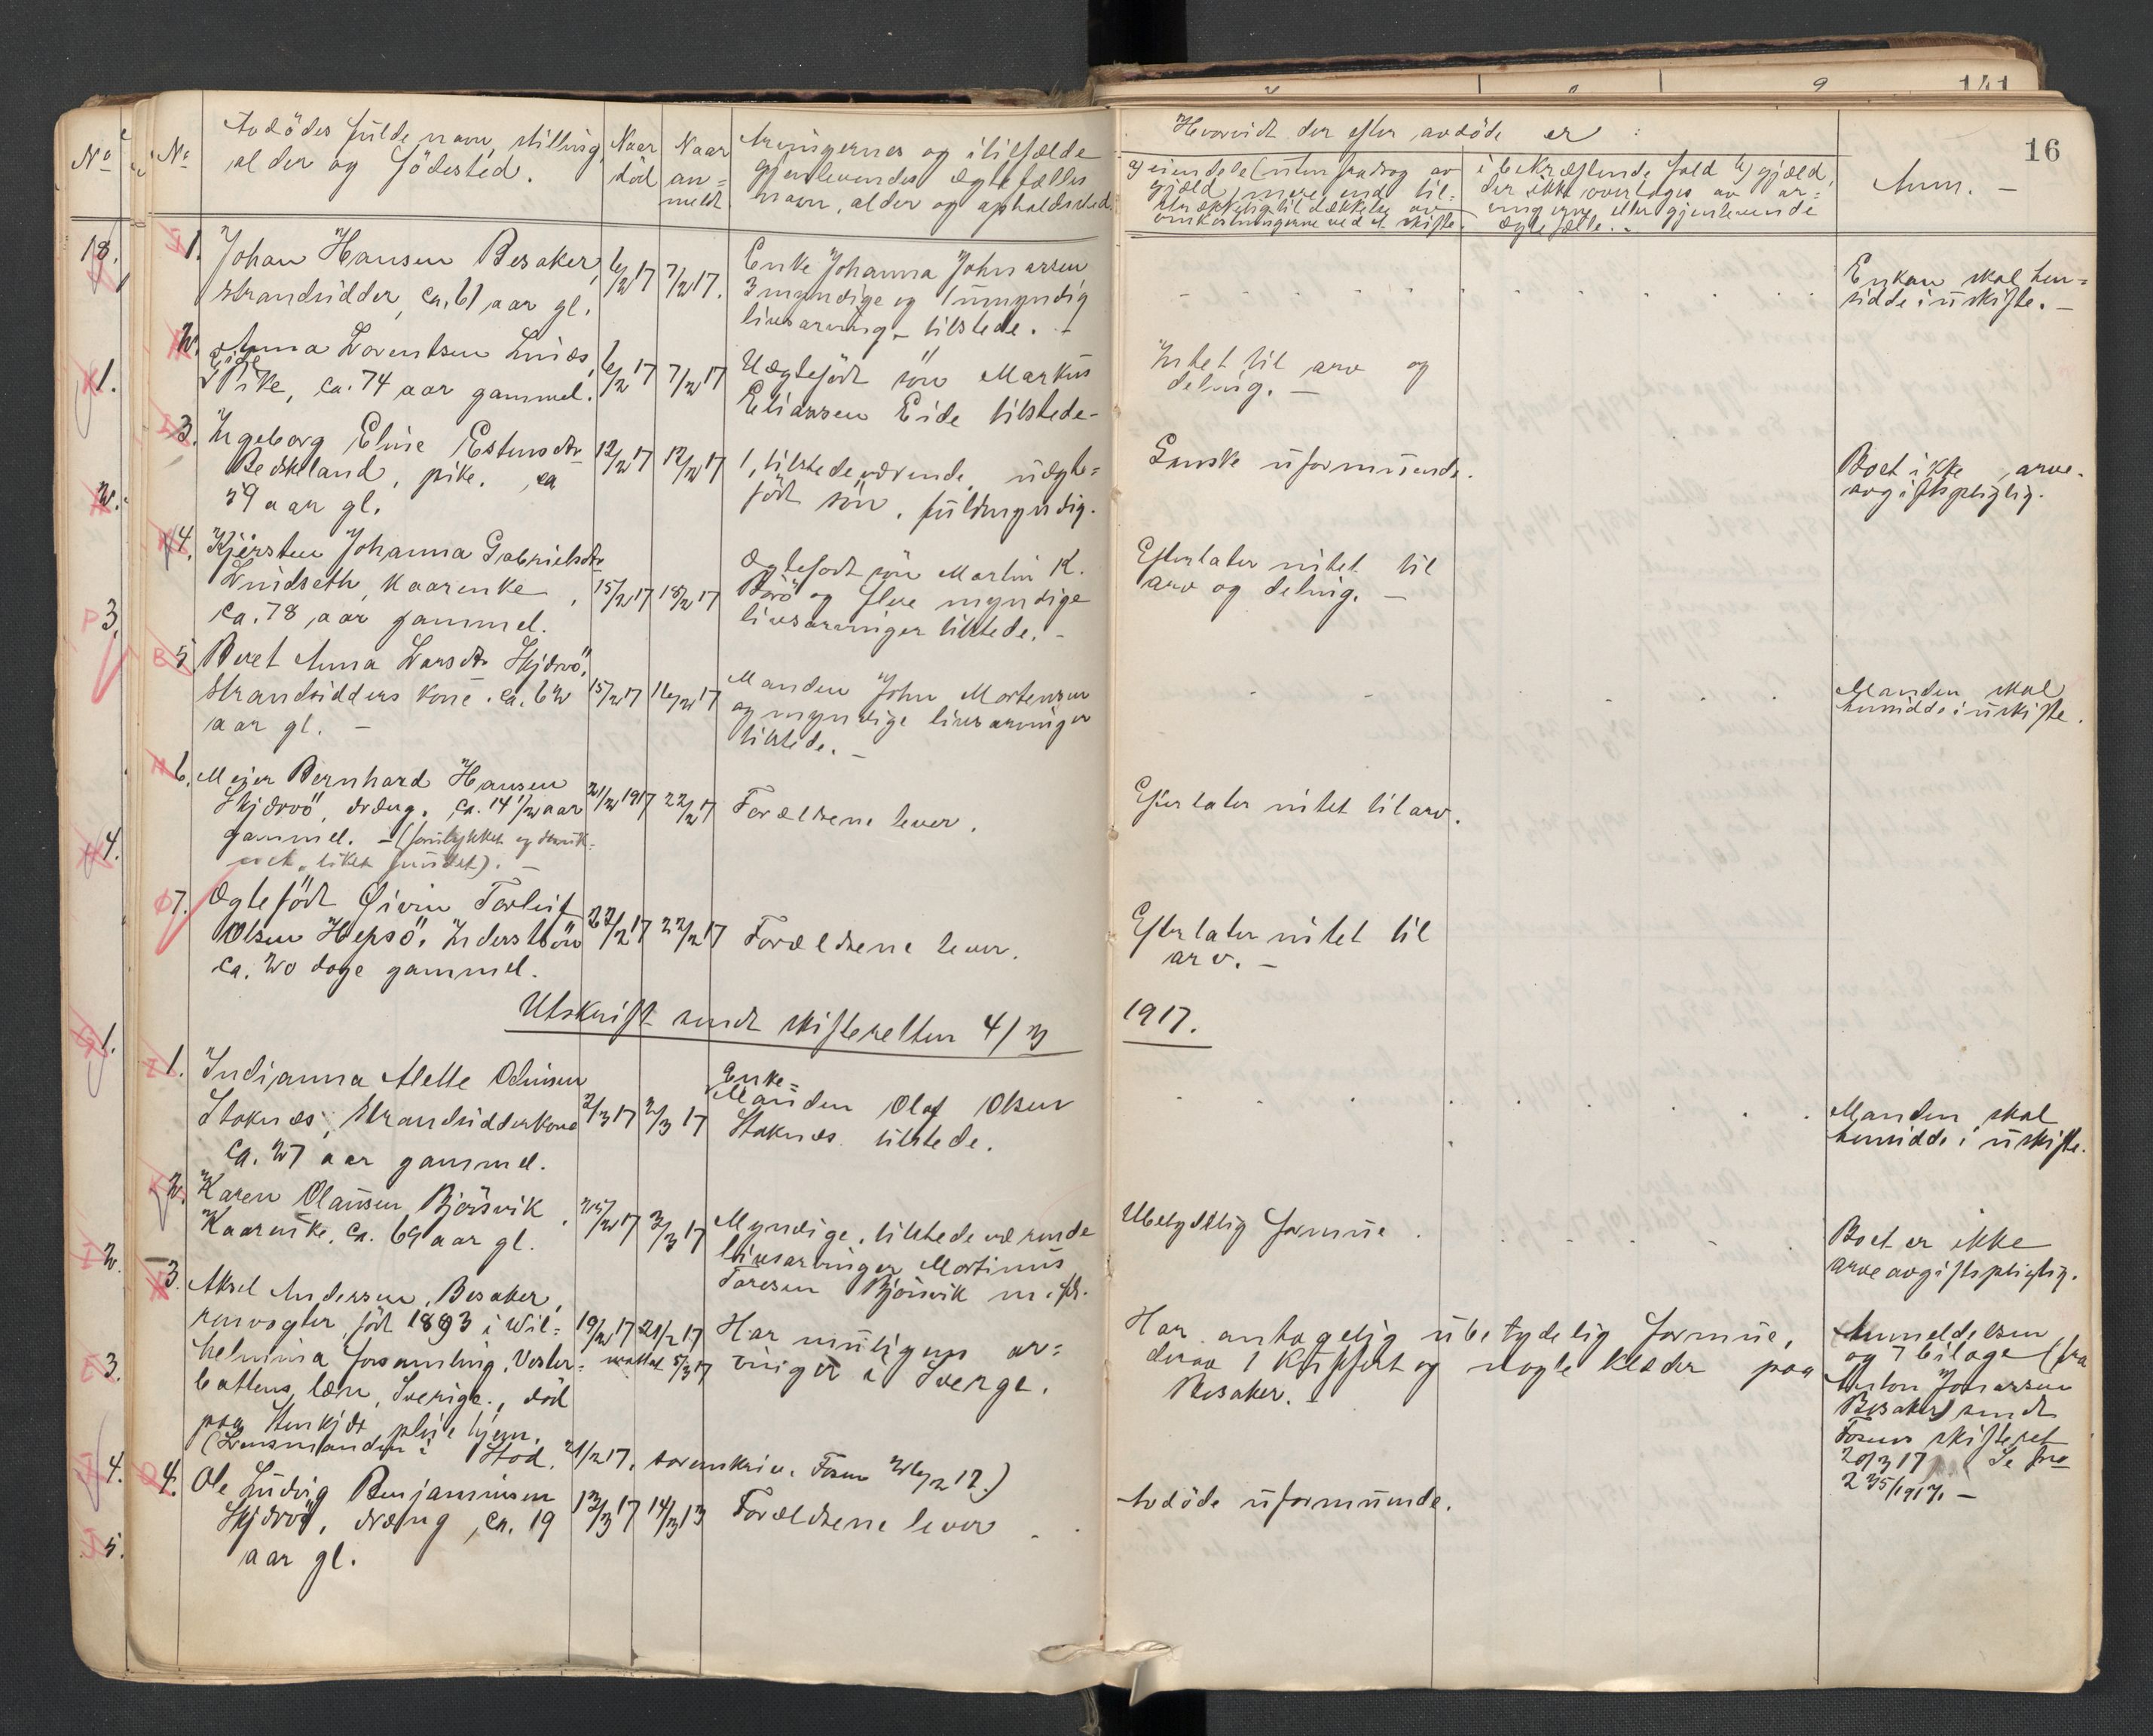 141
16
No
No
Avdödes fulde navn, stilling,
alder og födested.
Naar
död
Naar
an=
meldt
Arvingernes og i tilfælde
gjenlevendes ægtefælles
navn, alder og opholdssted.
Hvorvidt der efter avdöde er:
a) eiendele (uten fradrag av
gjæld) mere end til=
strækkelig til dækkelse av
omkostningerne ved et skifte.
i bekræftende fald b) gjæld,
der ikke overtages av ar=
vingerne eller gjenlevende
ægtefælle.
Anm. —
18.
1.
2.
3.
4.
1.
2.
3.
4.
5.
1. Johan Hansen Besaker,
strandsidder, ca. 61 aar gl.
6/2 17
7/2 17.
Enke Johanna Johnarsen
3 myndige og 1 umyndig
livsarving - tilstede. -
Enkan skal hen=
sidde i uskifte. —
2. Anna Lorentsen
Eide
Pike, ca. 74 aar gammel.
6/2 17
7/2 17
Uægtefödt sön Markus
Eliassen Eide tilstede-
Intet til arv og
deling. —
3. Ingeborg Elise Estensdtr
Bedkeland, pike, ca
59 aar gl.
12/2 17
12/2 17
1, tilstedeværende, uægte=
födt sön, fuldmyndig.
Ganske uformuende.
Boet ikke arve-
avgiftspligtig.
4. Kjersten Johanna Gabrielsdtr
kaarenke,
ca. 78 aar gammel.
15/2 17
18/2 17
Ægtefödt sön Martin K.
og flere myndige
livsarvinger tilstede. -
Efterlater intet til
arv og deling. —
5 Beret Anna Larsdtr Skjærvö,
strandsidders kone. ca. 62
aar gl. —
15/2 17
16/2 17
Manden John Mortensen
og myndige livsarvinger
tilstede. —
Manden skal
hensidde i uskifte.
6. Meier Bernhard Hansen
Skjærvö, dræng, ca. 14 1/2 aar
gammel. - (forulykket og druk=
net, liket fundet). —
21/2 1917
22/2 17
Forældrene lever.
Efterlater intet til arv.
7. Ægtefödt Eivin Torleif
Olsen Hepsö,
ca. 20 dage gammel.
22/2 17
22/2 17
Forældrene lever.
Efterlater intet til
arv. —
Utskrift sendt skifteretten 4/3
1917.
1. Indianna Alette Odinsen
Stoknes, strandsidderkone
ca. 27 aar gammel.
2/3 17
2/3 17
Enke=
Manden Olaf Olsen
Stoknes tilstede.
Manden skal
hensidde i uskifte.
2. Karen Olausen Björsvik,
Kaarenke, ca. 69 aar gl.
25/2 17
3/3 17
Myndige, tilstedeværende
livsarvinger Martinus
Toresen Björsvik m. fl.
Ubetydelig formue.
Boet er ikke
arveavgiftspligtig.
3. Aksel Andersen, Besaker,
renvogter, födt 1893 i Wil=
helmina forsamling, Vester=
bottens læn, Sverige, död
paa Stenkjær pleiehjem.
(Lensmanden i Stod. 21/2 17. sorenskriv. Fosen 26/2 17.)
19/2 17
21/2 17
mottat 5/3 17
Har muligens ar=
vinger i Sverge.
Har antagelig ubetydelig formue,
derav 1 kuffert og nogle klæder paa
Besaker. —
Anmeldelsen
og 7 bilage (fra
Anton Jonassen
Besaker) sendt
Fosens skifteret
20/3 17. Se
235/1917. —
4. Ole Ludvig Benjaminsen
Skjærvö, dræng, ca. 19
aar gl.
13/3 17
14/3 13
Forældrene lever
Avdöde uformuende.